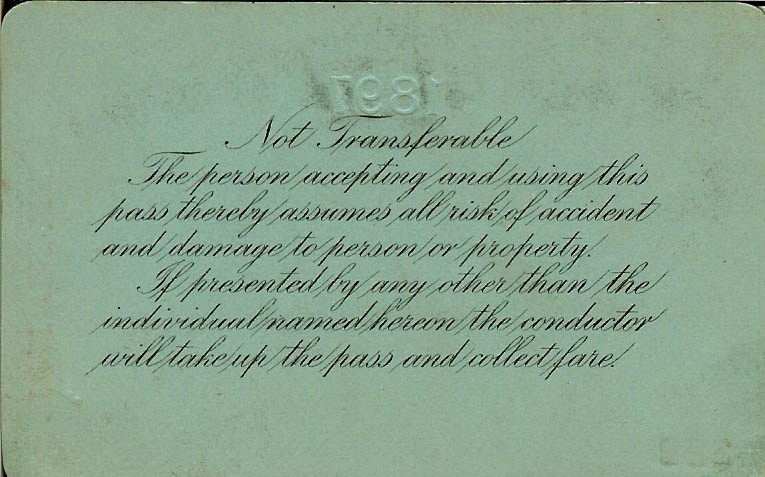 1897
Not Transferable
The person accepting and using this
pass thereby assumes all risk of accident
and damage to person or property.
If presented by any other than the
individual named hereon the conductor
will take up the pass and collect fare.